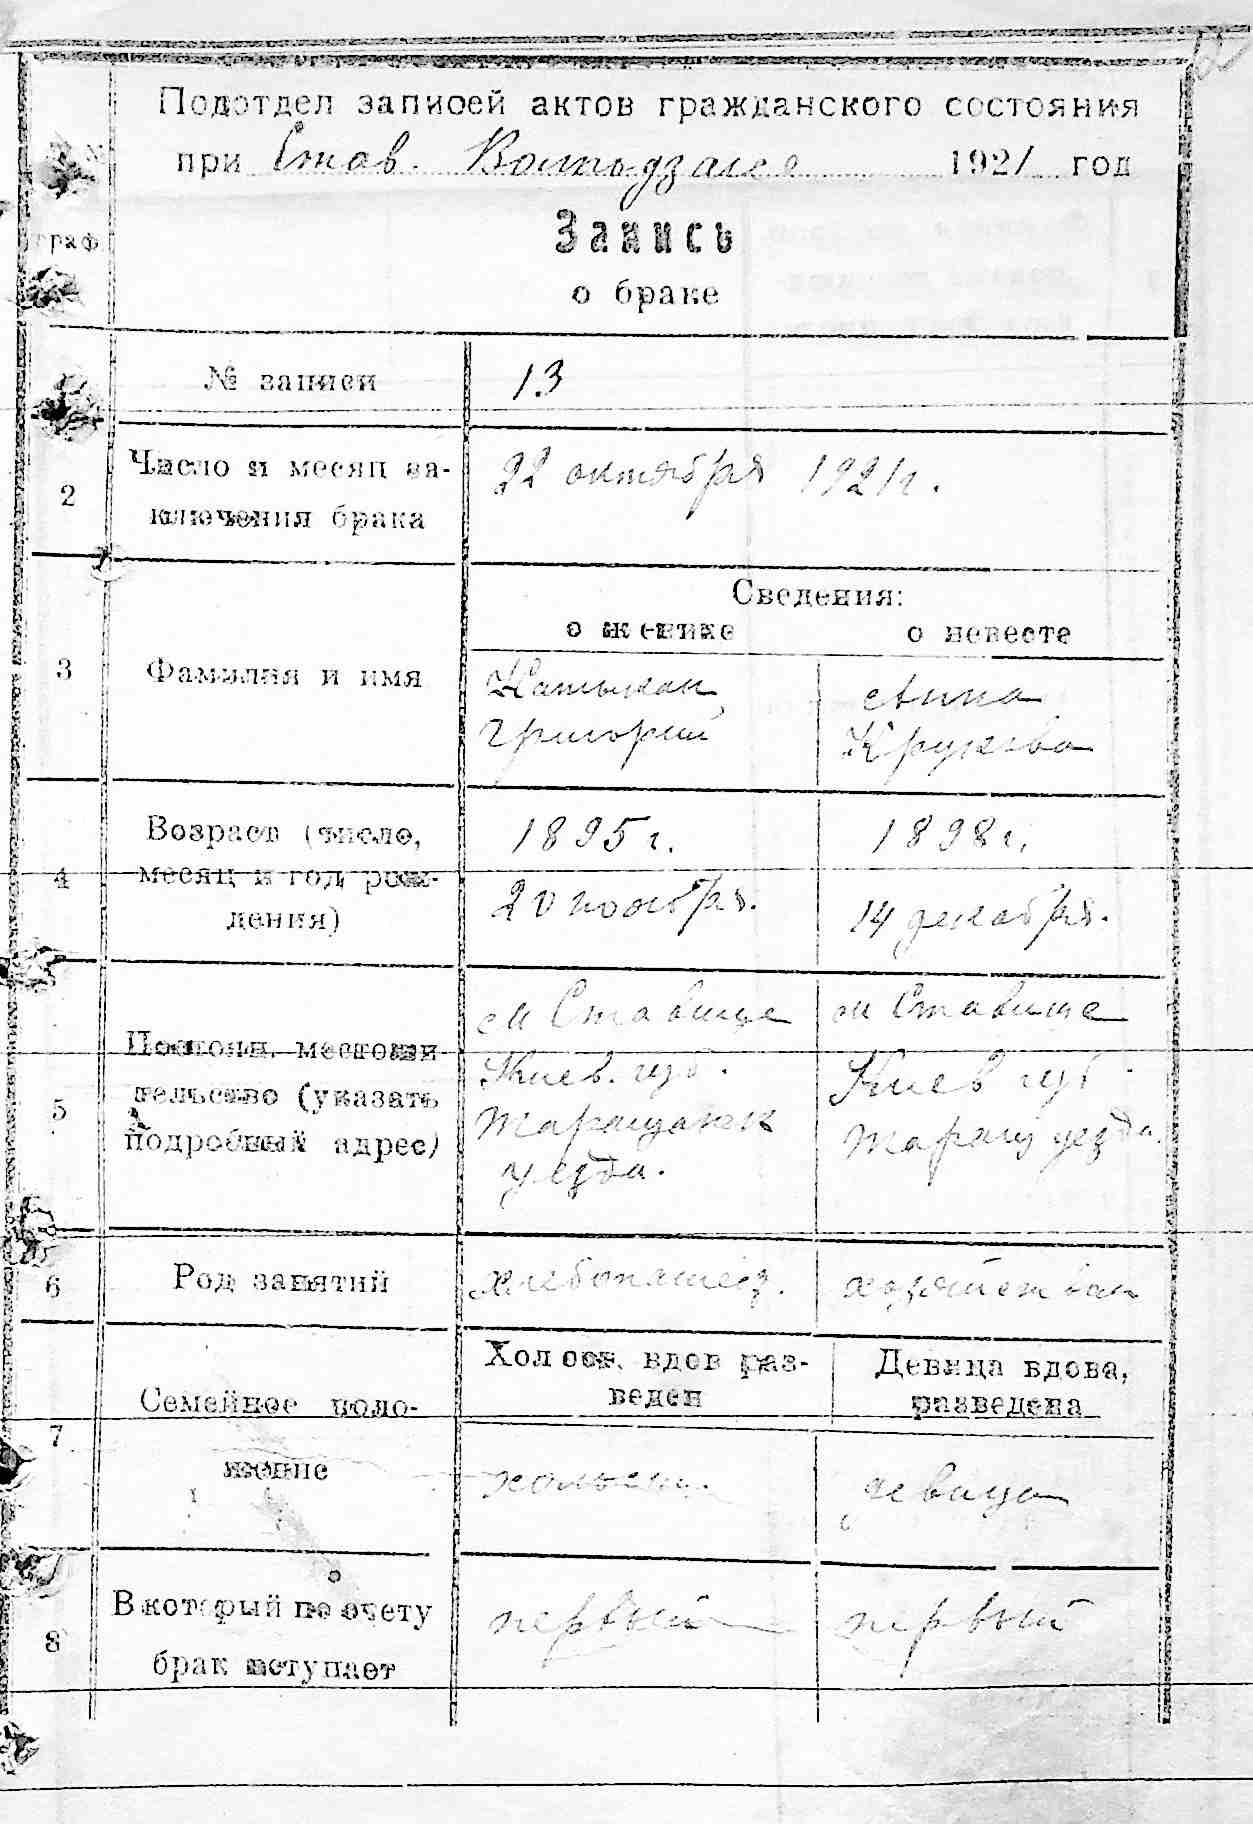 Подотдел записей актов гражданского состояния
при Став. 1921 год
№
граф
Запись
о браке
№ записи 13
2 Число и месяц за-
ключения брака
22 октября 1921 г.
Сведения:
о женихе о невесте
3 Фамилия и имя
Григорий
Анна
4 Возраст (число,
месяц и год рож-
дения)
1895 г.
20 ноября.
1898 г.
14 декабря.
5 Постоян. местожи
тельство (указать
подробный адрес)
м Ставище
Киев. губ.
Таращанск
уезда.
м Ставище
Киев губ.
Таращ уезда.
6 Род занятий
хлебопашец.
7 Семейное поло-
жение
Холост, вдов раз-
веден
Девица вдова,
разведена
девица
8 В который по счету
брак вступает
первый
первый